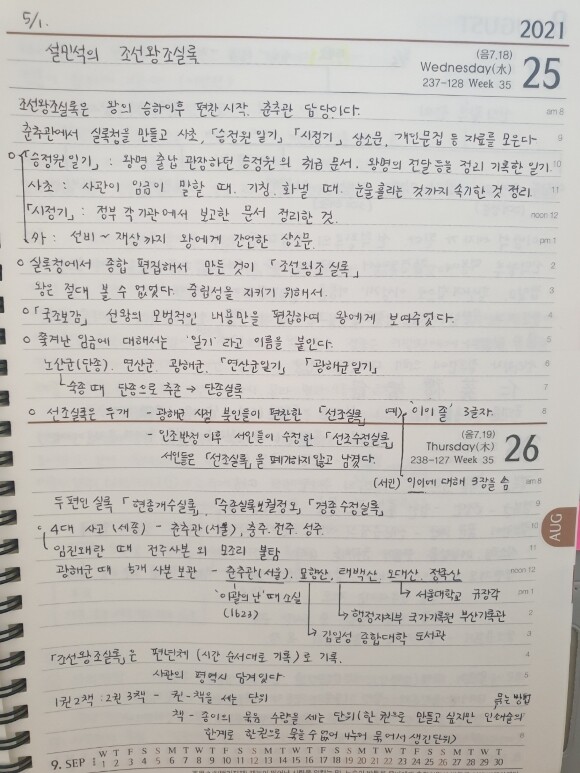 5/1.
2021
설민석의 조선왕조실록
(음7.18)
Wednesday(水) 25
237-128 Week 35
조선왕조실록은 왕의 승하이후 편찬 시작. 춘추관 담당이다.
am 8
춘추관에서 실록청을 만들고 사초, 「승정원 일기」 「시정기」 상소문, 개인문집 등 자료를 모은다
9
「승정원 일기」 : 왕명 출납 관장하던 승정원의 취급 문서. 왕명의 전달 등을 정리 기록한 일기.
10
사초 : 사관이 임금이 말할 때. 기침, 화낼 때. 눈물흘리는 것까지 속기한 것 정리.
11
「시정기」 : 정부 각기관에서 보고한 문서 정리한 것.
noon 12
外 : 선비 ~ 재상까지 왕에게 간언한 상소문.
pm 1
○ 실록청에서 종합 편집해서 만든 것이 「조선왕조실록」
2
왕은 절대 볼 수 없었다. 중립성을 지키기 위해서.
3
○ 「국조보감」 선왕의 모범적인 내용만을 편집하여 왕에게 보여주었다.
4
○ 쫓겨난 임금에 대해서는 '일기' 라고 이름을 붙인다.
5
노산군(단종). 연산군. 광해군. 「연산군일기」 「광해군일기」
6
숙종 때 단종으로 추존 → 단종실록
7
○ 선조실록은 두개 - 광해군 시절 북인들이 편찬한 「선조실록」 예) '이이 졸' 3글자.
8
- 인조반정 이후 서인들이 수정한 「선조수정실록」
(음7.19)
Thursday(木) 26
238-127 Week 35
서인들은 「선조실록」을 폐기하지 않고 남겼다.
(서인) 이이에 대해 3장을 씀
am 8
두 편인 실록 「현종개수실록」 「숙종실록보궐정오」 「경종수정실록」
9
AUG
4대 사고 (세종) - 춘추관(서울), 충주. 전주. 성주.
10
임진왜란 때 전주사본 외 모조리 불탐
11
광해군 때 5개 사본 보관 - 춘추관(서울). 묘향산. 태백산. 오대산. 정족산
noon 12
'이괄의 난' 때 소실
→ 서울대학교 규장각
pm 1
(1623)
→ 행정자치부 국가기록원 부산기록관
2
→ 김일성 종합대학 도서관
3
「조선왕조실록」은 편년체 (시간 순서대로 기록)로 기록.
4
사관의 평역시 담겨있다.
5
1권2책 : 2권 3책 - 권 - 책을 세는 단위
묶는 방법
책 - 종이의 묶음 수량을 세는 단위 (한 권으로 만들고 싶지만 인쇄술의
한계로 한권으로 묶을 수 없어 나누어 묶어서 생긴단위)
9. SEP
W T F S S M T W T F S S M T W T F S S M T W T F S S M T W T
1 2 3 4 5 6 7 8 9 10 11 12 13 14 15 16 17 18 19 20 21 22 23 24 25 26 27 28 29 30